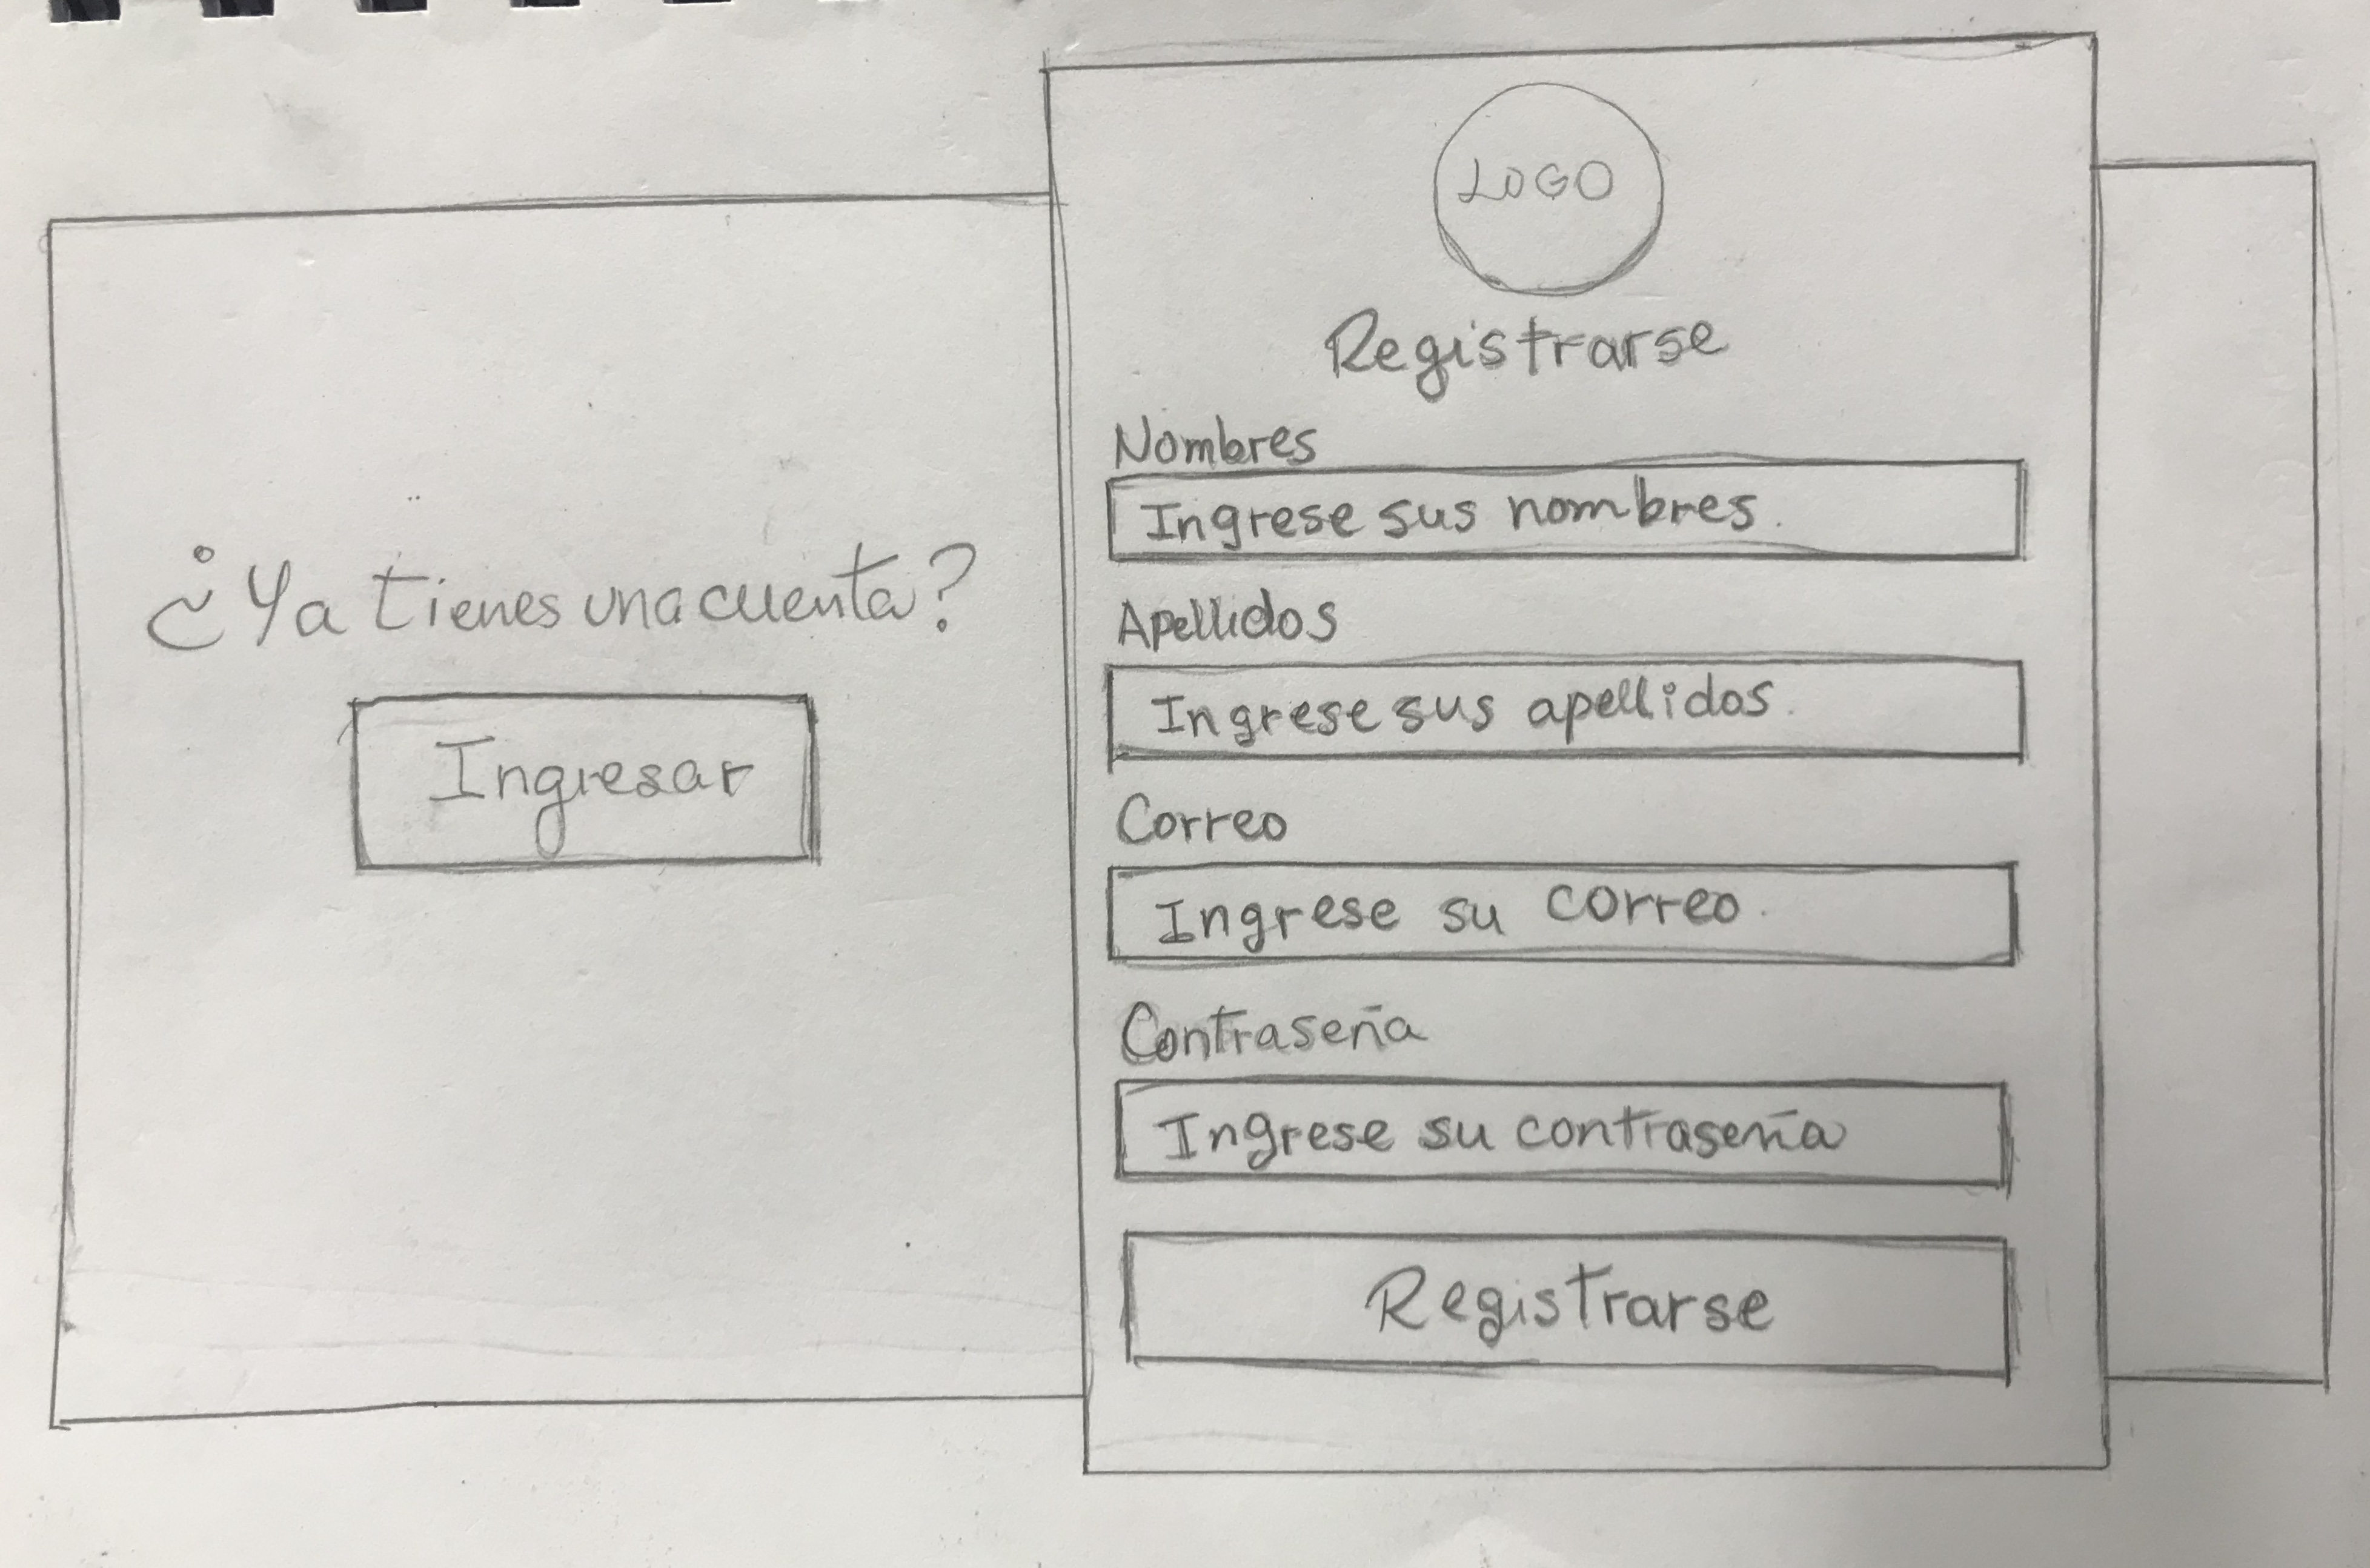 ¿Ya tienes una cuenta?
Ingresar
LOGO
Registrarse
Nombres
Ingrese sus nombres.
Apellidos
Ingrese sus apellidos.
Correo
Ingrese su correo.
Contraseña
Ingrese su contraseña
Registrarse